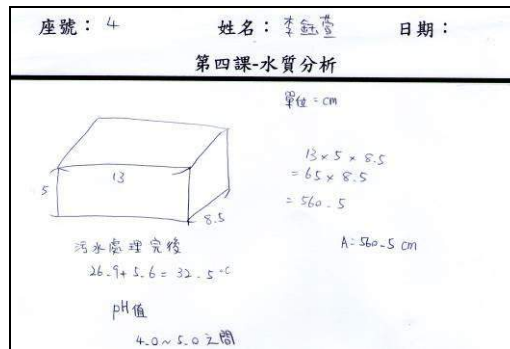 座號：4 姓名：李鈺萱 日期：
第四課-水質分析
單位=cm
5
13
8.5
13×5×8.5
=65×8.5
=560.5
A:560.5 cm
污水處理完後
26.9+5.6=32.5°C
pH值
4.0~5.0之間